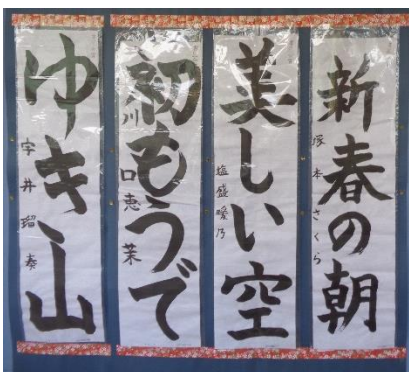 新春の朝
塚本さくら
美しい空
塩盛瑷乃
初もうで
川口恵茉
ゆき山
宇井瑠奏